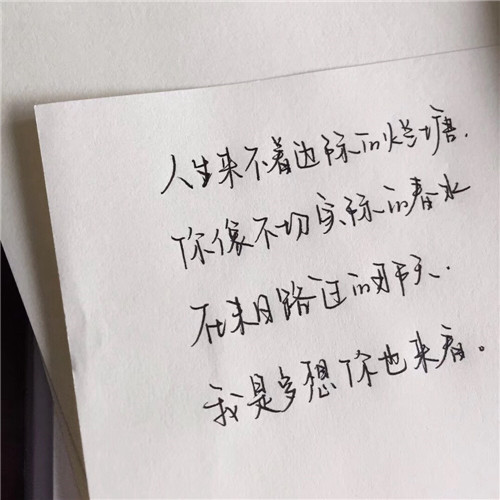 人生来不着边际的烂塘.
你像不切实际的春水
在来日路过的那天.
我是多想你也来看。